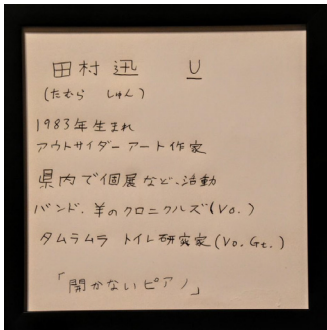 田村 迅 U
(たむら しゅん)
1983年生まれ
アウトサイダーアート作家
県内で個展など、活動
バンド、羊のクロニクルズ(Vo.)
タムラムラ トイレ研究家(Vo.Gt.)
「開かないピアノ」